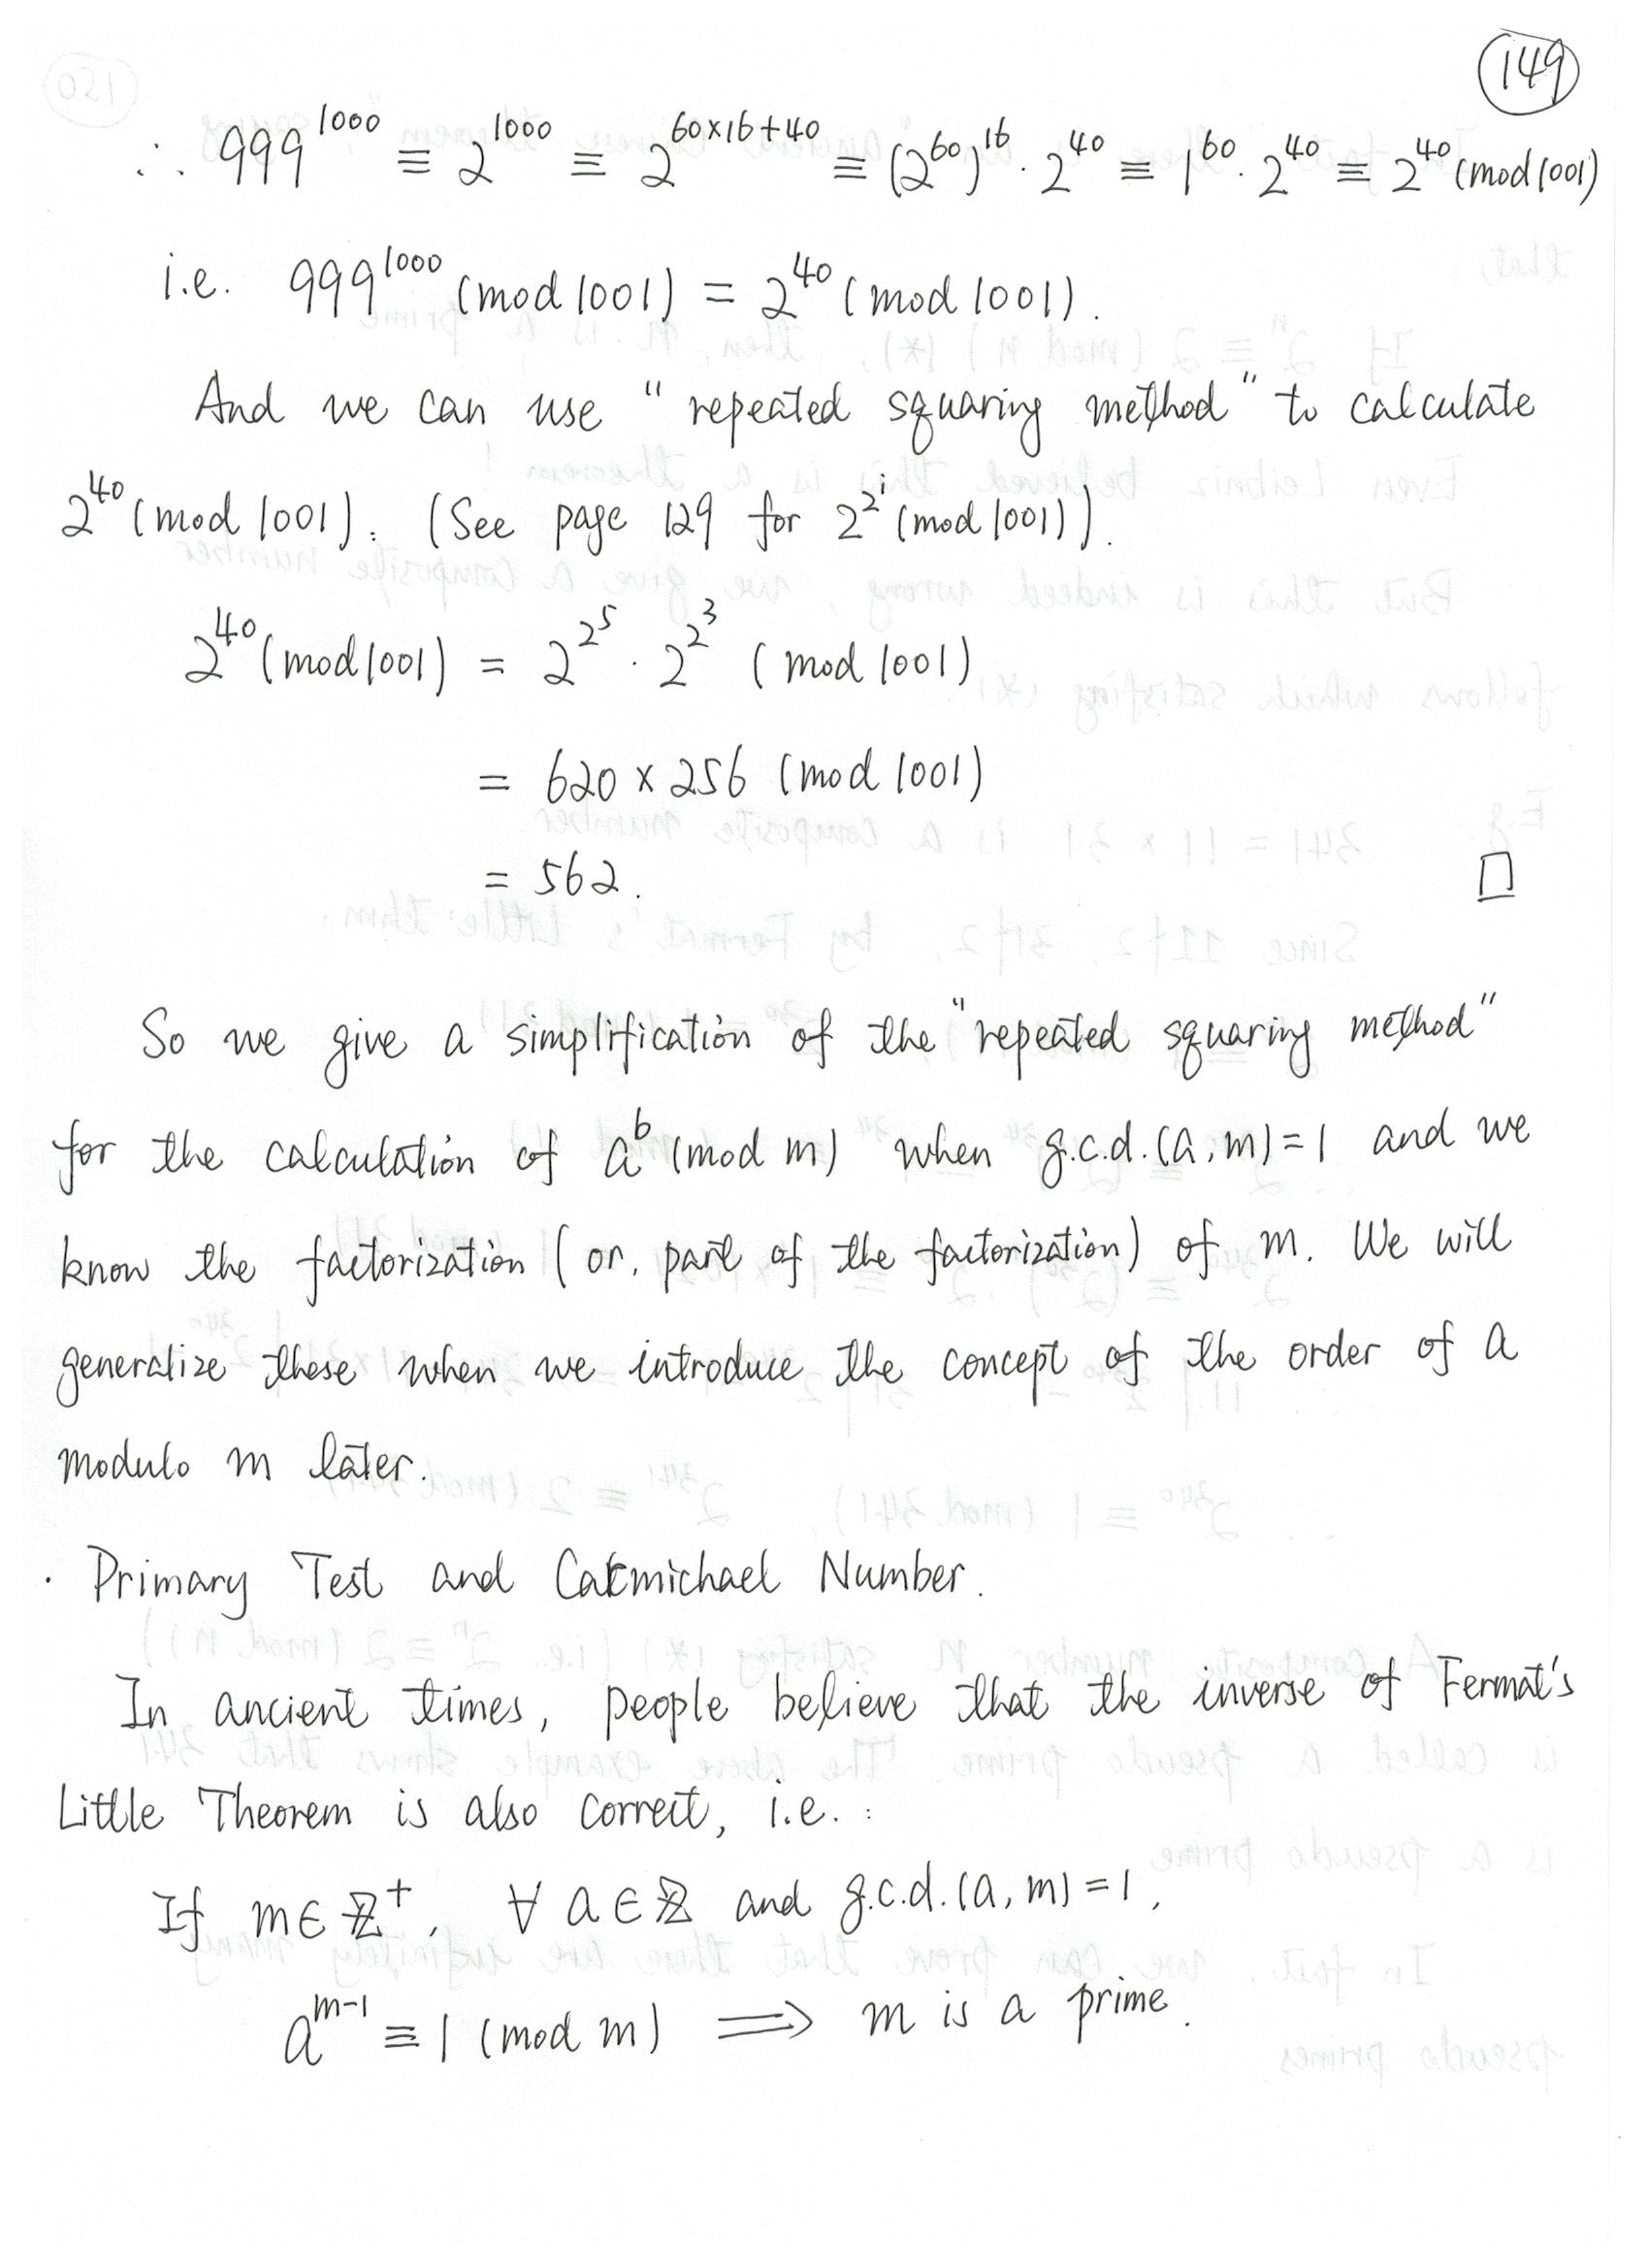 149
∴ 999^1000 ≡ 2^1000 ≡ 2^(60×16+40) ≡ (2^60)^16 · 2^40 ≡ 1^60 · 2^40 ≡ 2^40 (mod 1001)
i.e. 999^1000 (mod 1001) = 2^40 (mod 1001).
And we can use "repeated squaring method" to calculate
2^40 (mod 1001). (See page 129 for 2^2^i (mod 1001)).
2^40 (mod 1001) = 2^2^5 · 2^2^3 (mod 1001)
= 620 × 256 (mod 1001)
= 562. □
So we give a simplification of the "repeated squaring method"
for the calculation of a^b (mod m) when g.c.d.(a, m) = 1 and we
know the factorization (or, part of the factorization) of m. We will
generalize these when we introduce the concept of the order of a
modulo m later.
· Primary Test and Carmichael Number.
In ancient times, people believe that the inverse of Fermat's
Little Theorem is also correct, i.e. :
If m ∈ ℤ⁺, ∀ a ∈ ℤ and g.c.d.(a, m) = 1,
a^(m-1) ≡ 1 (mod m) ⟹ m is a prime.